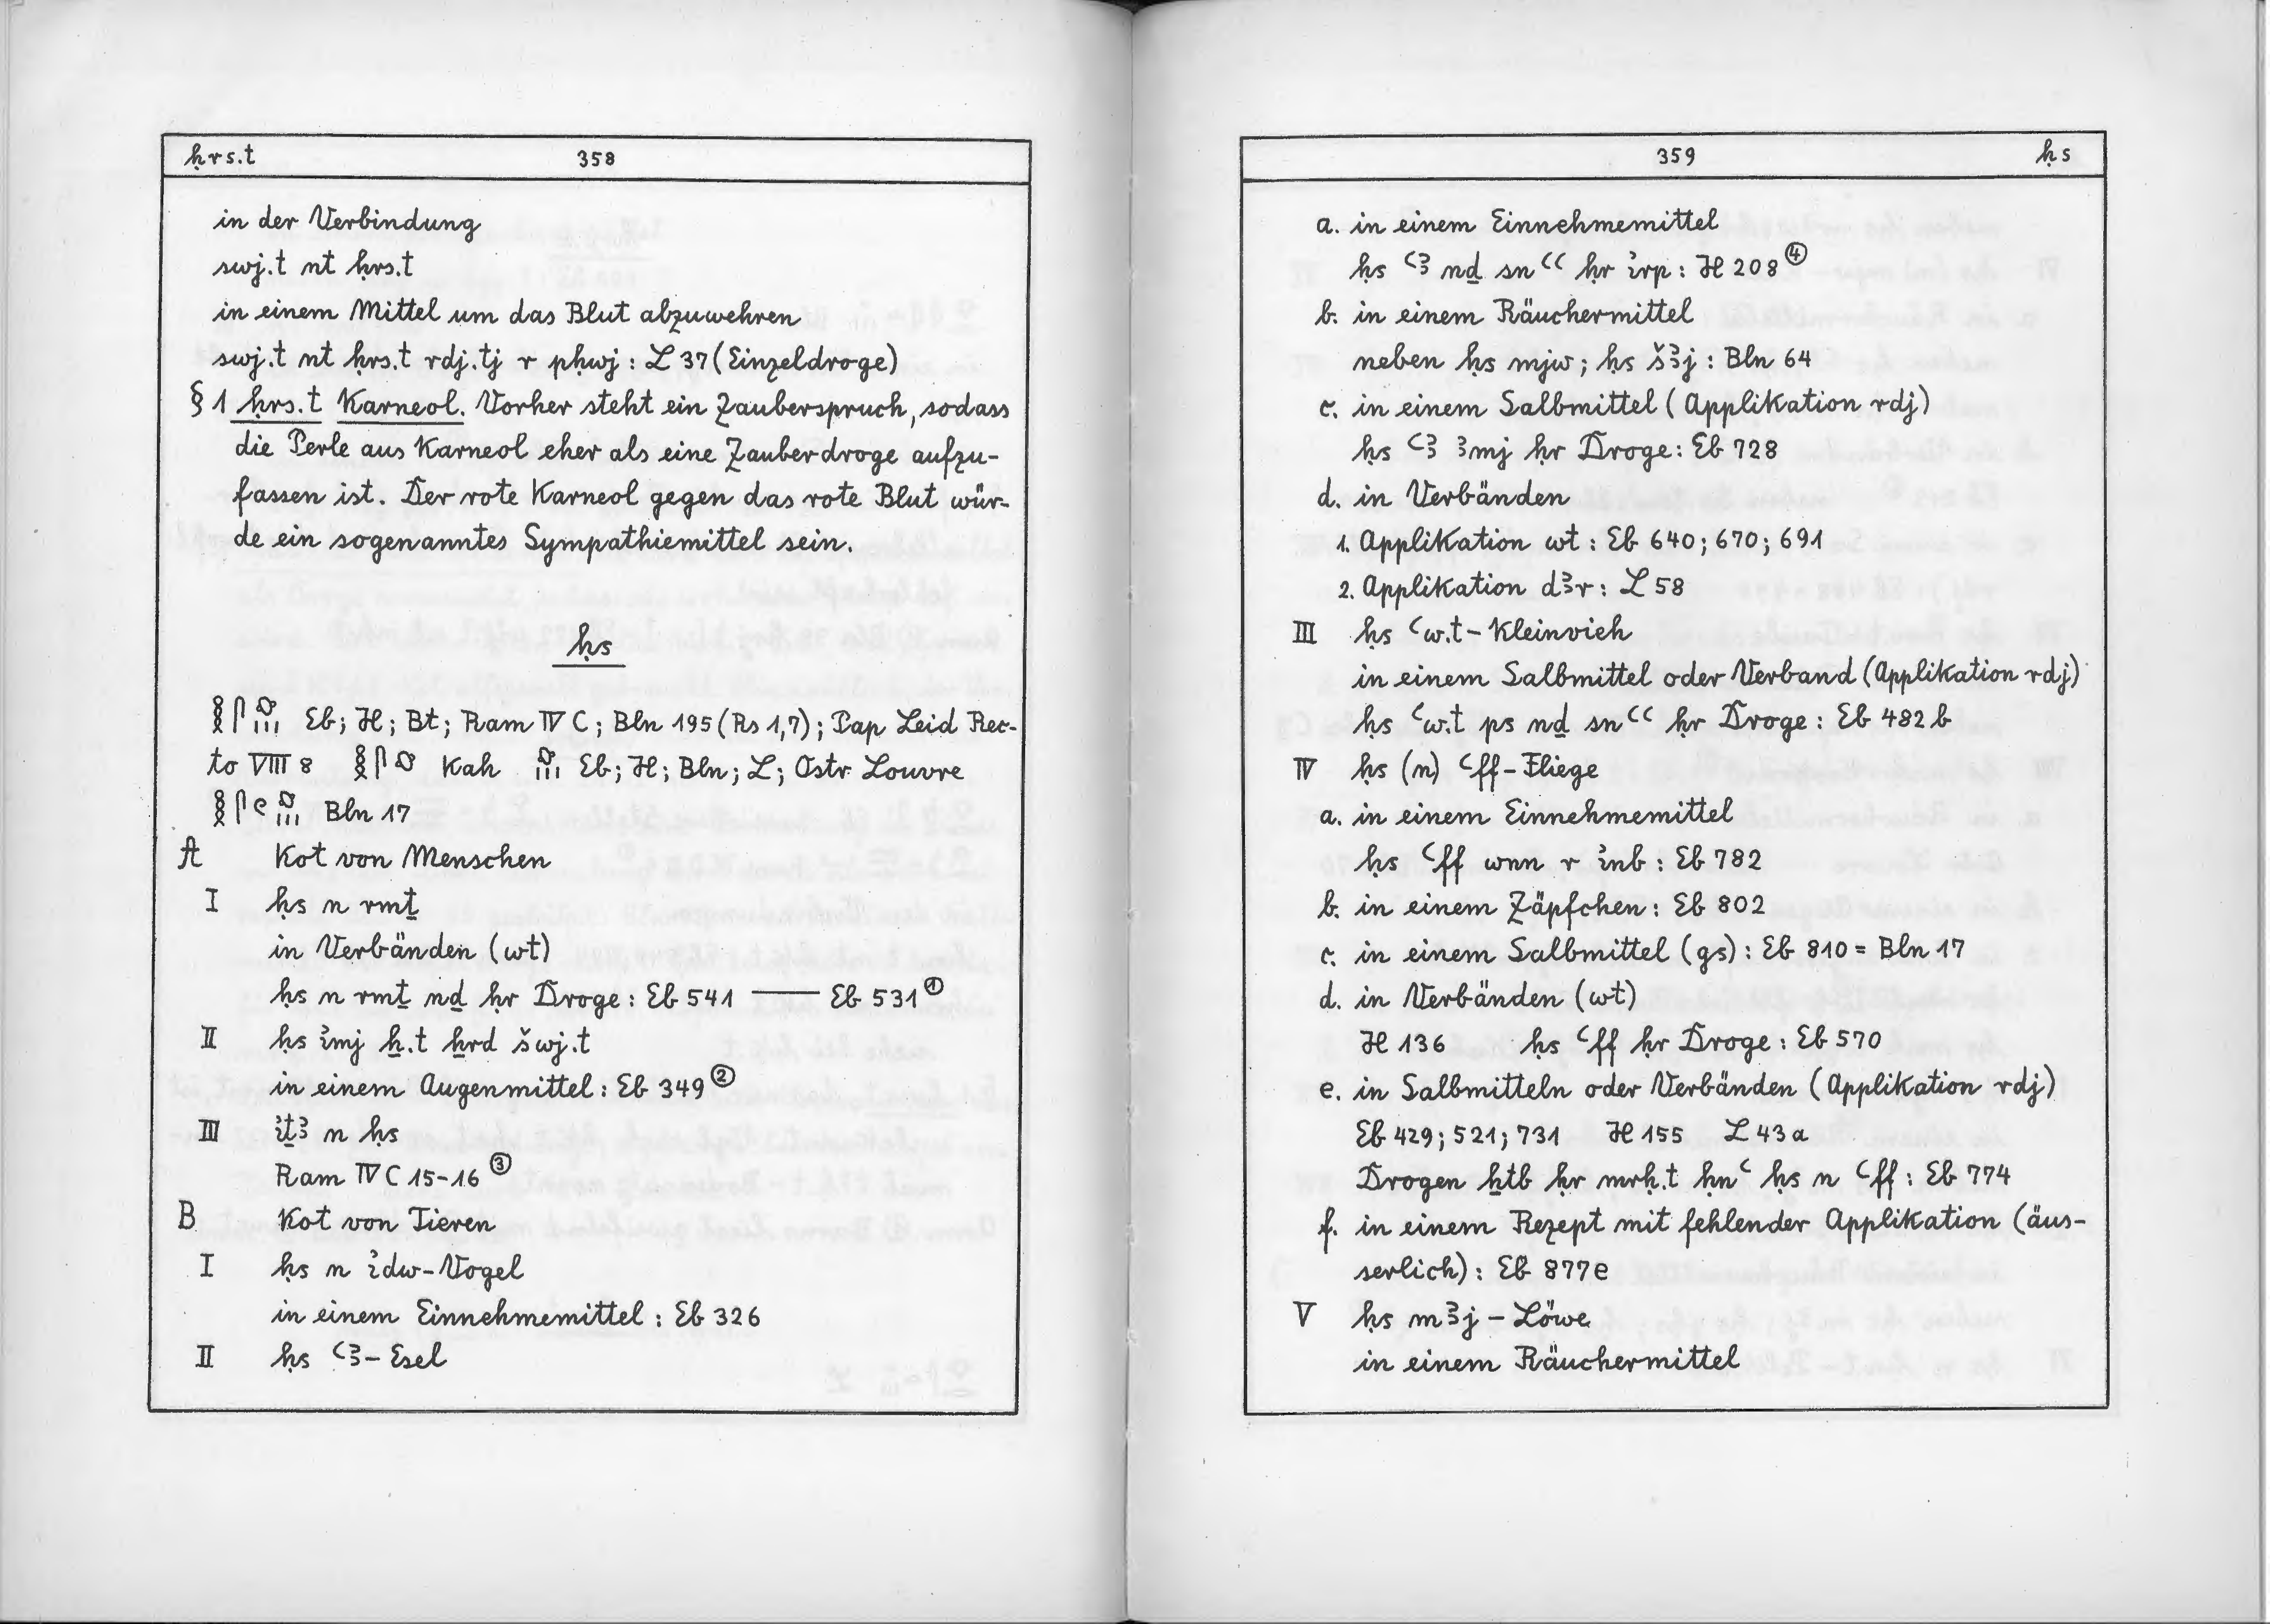 ḥrs.t 358
in der Verbindung
swj.t nt ḥrs.t
in einem Mittel um das Blut abzuwehren
swj.t nt ḥrs.t rdj.tj r pḥwj : L 37 (Einzeldroge)
§ 1 ḥrs.t Karneol. Vorher steht ein Zauberspruch, sodass
die Perle aus Karneol eher als eine Zauberdroge aufzu-
fassen ist. Der rote Karneol gegen das rote Blut wür-
de ein sogenanntes Sympathiemittel sein.
ḥs
𓎛𓋴𓄽𓏥 Eb; H; Bt; Ram IV C; Bln 195 (Rs 1,7); Pap Leid Rec-
to VIII 8 𓎛𓋴𓄽 Kah 𓄽𓏥 Eb; H; Bln; L; Ostr Louvre
𓎛𓋴𓏲𓄽𓏥 Bln 17
A Kot von Menschen
I ḥs n rmṯ
in Verbänden (wt)
ḥs n rmṯ nḏ ḥr Droge : Eb 541 —— Eb 531 ①
II ḥs ỉmj ẖ.t ẖrd šwj.t
in einem Augenmittel : Eb 349 ②
III ỉṯꜣ n ḥs
Ram IV C 15-16 ③
B Kot von Tieren
I ḥs n ỉdw-Vogel
in einem Einnehmemittel : Eb 326
II ḥs ꜥꜣ-Esel
359 ḥs
a. in einem Einnehmemittel
ḥs ꜥꜣ nḏ snꜥꜥ ḥr ỉrp : H 208 ④
b. in einem Räuchermittel
neben ḥs mjw; ḥs šꜣj : Bln 64
c. in einem Salbmittel (Applikation rdj)
ḥs ꜥꜣ ꜣmj ḥr Droge : Eb 728
d. in Verbänden
1. Applikation wt : Eb 640; 670; 691
2. Applikation dꜣr : L 58
III ḥs ꜥw.t-Kleinvieh
in einem Salbmittel oder Verband (Applikation rdj)
ḥs ꜥw.t ps nḏ snꜥꜥ ḥr Droge : Eb 482 b
IV ḥs (n) ꜥff-Fliege
a. in einem Einnehmemittel
ḥs ꜥff wnn r ỉnb : Eb 782
b. in einem Zäpfchen : Eb 802
c. in einem Salbmittel (gs) : Eb 810 = Bln 17
d. in Verbänden (wt)
H 136 ḥs ꜥff ḥr Droge : Eb 570
e. in Salbmitteln oder Verbänden (Applikation rdj)
Eb 429; 521; 731 H 155 L 43 a
Drogen ẖtb ḥr mrḥ.t ḥnꜥ ḥs n ꜥff : Eb 774
f. in einem Rezept mit fehlender Applikation (äus-
serlich) : Eb 877e
V ḥs mꜣj – Löwe
in einem Räuchermittel